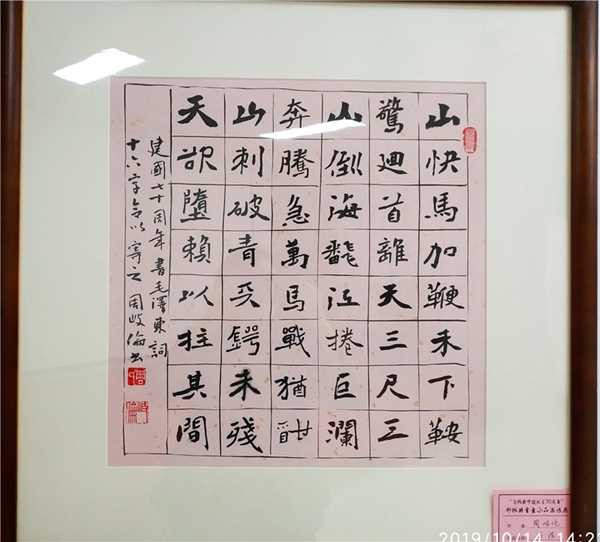 山快馬加鞭未下鞍
驚迴首離天三尺三
山倒海飜江捲巨瀾
奔騰急萬馬戰猶酣
山刺破青天鍔未殘
天欲墮賴以拄其間
建國七十周年書毛澤東詞
十六字令以寄之周岐倫書
2019/10/14 14:2